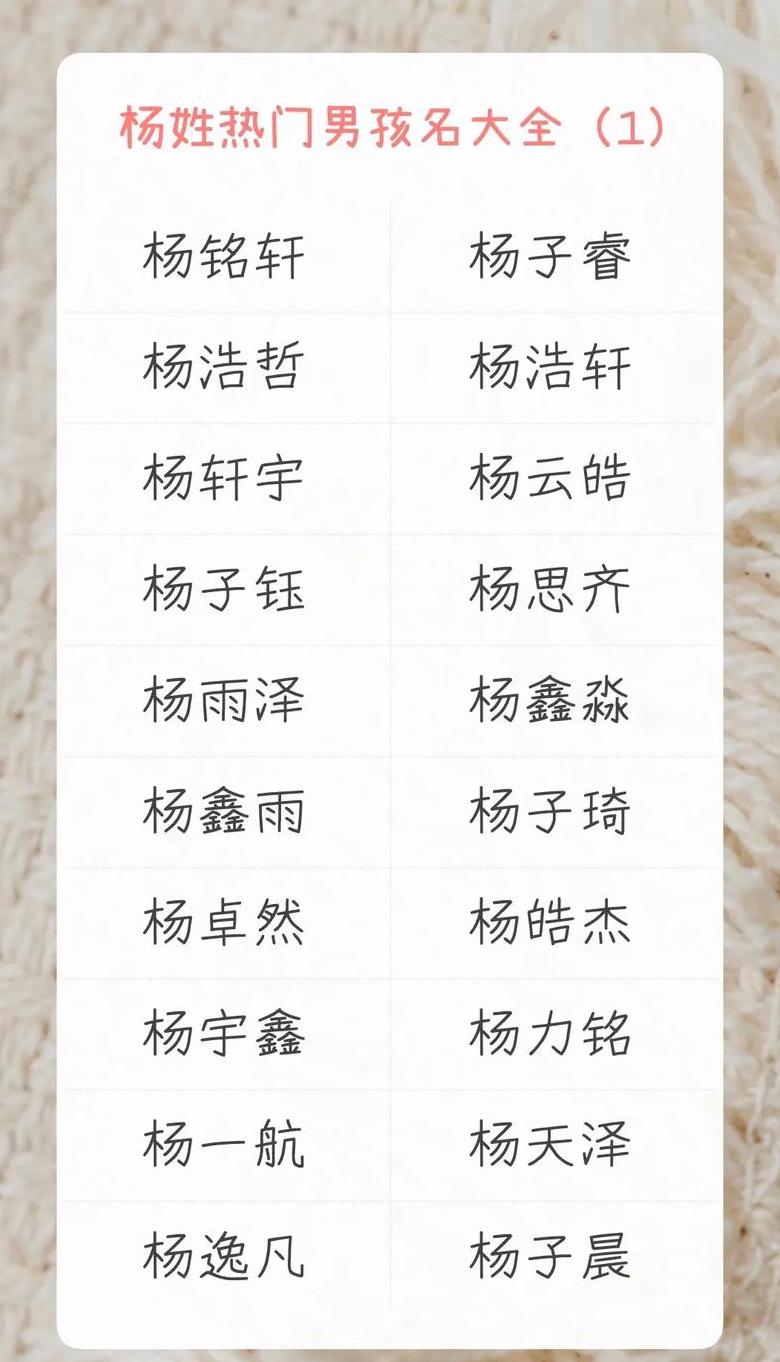 杨姓热门男孩名大全（1）
杨铭轩 杨子睿
杨浩哲 杨浩轩
杨轩宇 杨云皓
杨子钰 杨思齐
杨雨泽 杨鑫淼
杨鑫雨 杨子琦
杨卓然 杨皓杰
杨宇鑫 杨力铭
杨一航 杨天泽
杨逸凡 杨子晨